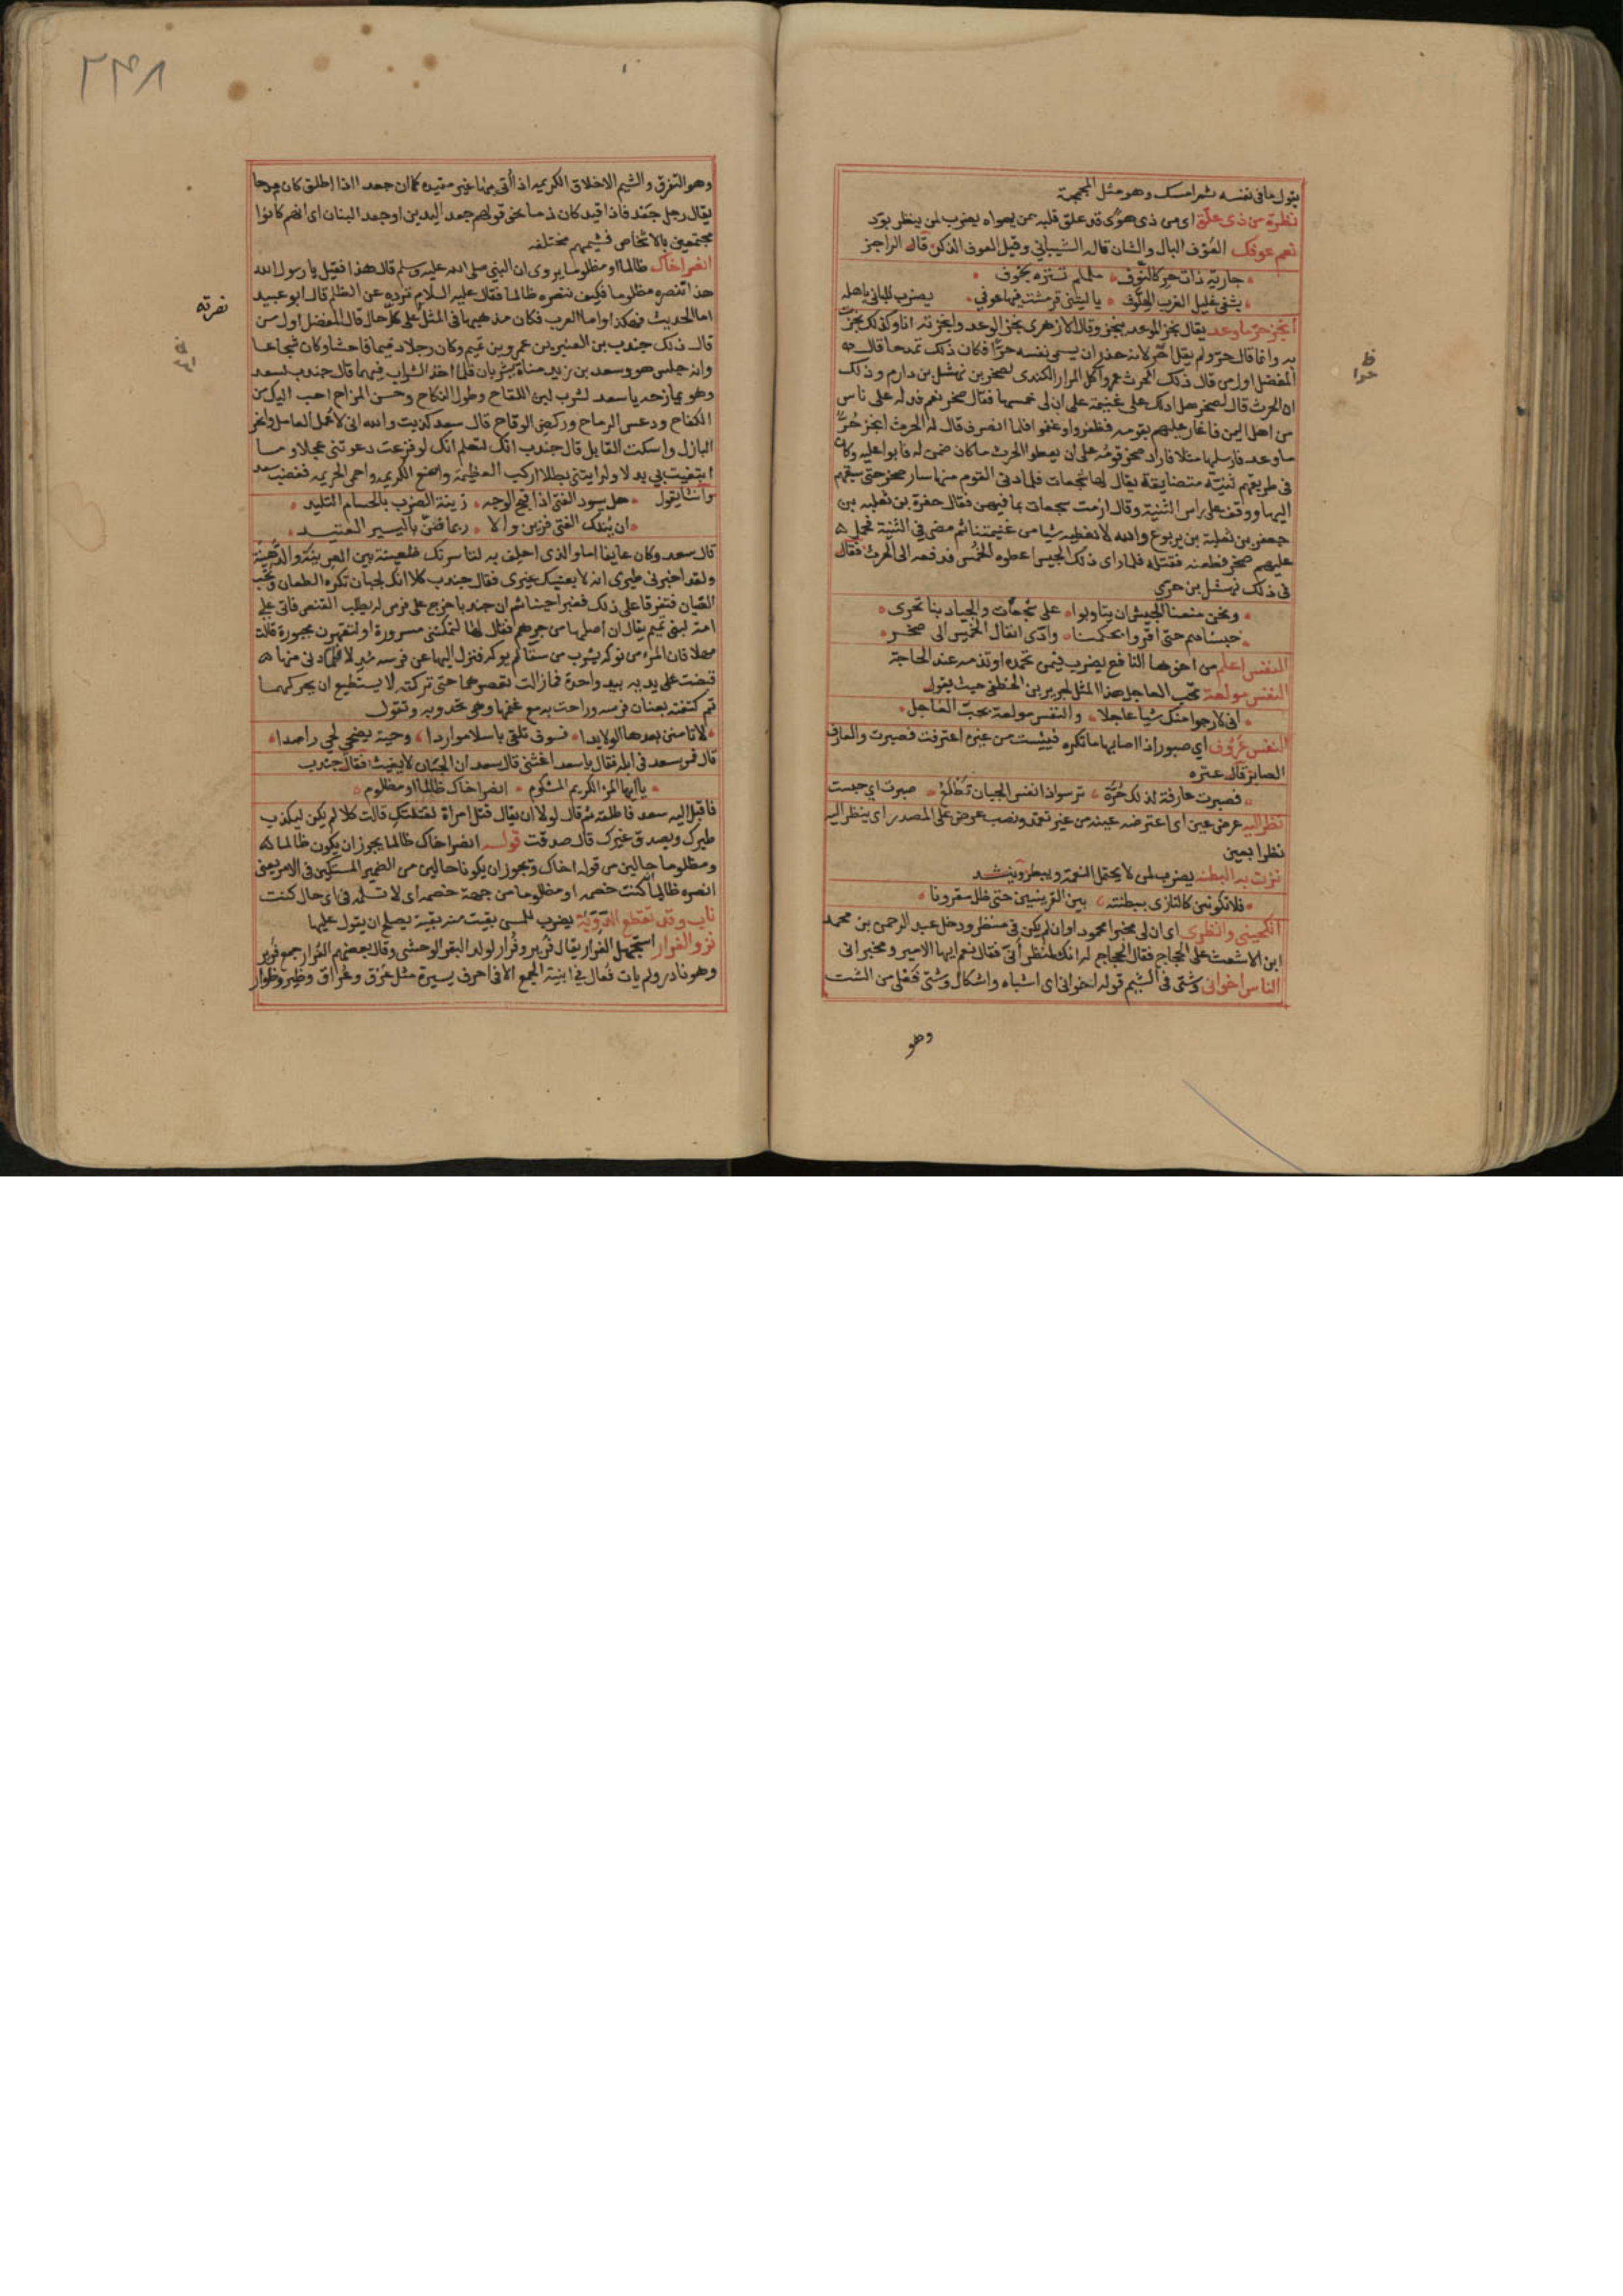 يقول ما فى نفسه ثم امسك وهو مثل المجمجة
نظرة من ذى علق اى من ذى هوى قد علق قلبه بمن يهواه يضرب لمن ينظر بود
نعم عوفك العوف البال والشان قاله الشيبانى وقيل العوف الذكر قال الراجز
جارية ذات حر كالنوف ململم تستره بخوف
يا ليتنى قرمشت فيها عوفى يضرب للبانى باهله
انجز حر ما وعد يقال نجز الوعد ينجز وقال الازهرى نجز الوعد وانجزته انا وكذلك نجزت
به وانما قال حر ولم يقل الحر لانه حذر ان يسمى نفسه حرا فكان ذلك تمدحا قال
المفضل اول من قال ذلك الحرث بن عمرو آكل المرار الكندى لصخر بن نهشل بن دارم وذلك
ان الحرث قال لصخر هل ادلك على غنيمة على ان لى خمسها فقال صخر نعم فدله على ناس
من اهل اليمن فاغار عليهم بقومه فظفروا وغنموا فلما انصرف قال له الحرث انجز حر
ما وعد فارسلها مثلا فاراد صخر قومه على ان يعطوا الحرث ما كان ضمن له فابوا عليه وكان
فى طريقهم ثنية متضايقة يقال لها شجعات فلما دنى القوم منها سار صخر حتى سبقهم
اليها ووقف على راس الثنية وقال ازمت شجعات بما فيهن فقال حمزة بن ثعلبه بن
جعفر بن ثعلبة بن يربوع والله لا نعطيه شيا من غنيمتنا ثم مضى فى الثنية فحمل
عليهم صخر فطعنه فقتله فلما راى ذلك الجيش اعطوه الخمس فدفعه الى الحرث فقال
فى ذلك نهشل بن حرى
ونحن منعنا الجيش ان يتاوبوا على شجعات والجياد بنا تجرى
حبسناهم حتى اقروا بحكمنا وادى انفال الخميس الى صخر
النفس اعلم من اخوها النافع يضرب فيمن تحمده او تذمه عند الحاجة
النفس مولعة بحب العاجل هذا المثل لجرير بن الخطفى حيث يقول
انى لارجوا منك شيا عاجلا والنفس مولعة بحب العاجل
النفس عروف اي صبور اذا اصابها ما تكره فيئست من خير اعترفت فصبرت والعارف
الصابر قال عنتره
فصبرت عارفة لذلك حرة ترسو اذا نفس الجبان تطلع صبرت اي حبست
نظر اليه عرض عين اى اعترضه عينه من غير تعمد ونصب عرض على المصدر اى ينظر اليه
نظرا بعين
نزت به البطنه يضرب لمن لا يحتمل النعمة ويبطر وينشد
فلا تكونين كالنازى ببطنته بين القرينين حتى ظل مقرونا
انكحينى وانظرى اى ان لى مخبرا محمودا وان لم يكن لى منظر ودخل عبد الرحمن بن محمد
ابن الاشعث على الحجاج فقال الحجاج له انك لمنظرانى فقال نعم ايها الامير ومخبرانى
الناس اخوان وشتى فى الشيم قوله اخوان اى اشباه واشكال وشتى فعلى من الشت
وهو
ظ
حرا
٢٣٨
وهو التفرق والشيم الاخلاق الكريمه اذا اتى بها غير مقيده كما ان جعدا اذا اطلق كان مدحا
يقال رجل جعد فاذا قيد كان ذما نحو قولهم جعد اليدين او جعد البنان اى انهم كانوا
مجتمعين بالاشخاص فشيمهم مختلفه
انصر اخاك ظالما او مظلوما يروى ان النبى صلى الله عليه وسلم قال هذا فقيل يا رسول الله
هذا ننصره مظلوما فكيف ننصره ظالما فقال عليه السلام ترده عن الظلم قال ابو عبيد
اما الحديث فهكذا واما العرب فكان مذهبها فى المثل على كل حال قال المفضل اول من
قال ذلك جندب بن العنبر بن عمرو بن تميم وكان رجلا دميما فاحشا وكان شجاعا
وانه جلس هو وسعد بن زيد مناة يشربان فلما اخذ الشراب فيهما قال جندب لسعد
وهو يمازحه يا سعد لشرب لبن اللقاح وطول النكاح وحسن المزاح احب اليك من
الكفاح ودعس الرماح وركض الوقاح قال سعد كذبت والله انى لاعمل العامل وانحر
البازل واسكت القايل قال جندب انك لتعلم انك لو فزعت دعوتنى عجلا وما
ابتغيت بى بدلا ولرايتنى بطلا اركب العظيمة وامنع الكريمه واحمى الحريمه فغضب سعد
وانشا يقول هل يسود الفتى اذا قبح الوجه زينة الضرب بالحسام التليد
ان ينلك الفتى فزين والا ربما ضن باليسير العتيد
قال سعد وكان عايفا اما والذى احلف به لتاسرنك ظعينة بين العرينة والدهينة
ولقد اخبرنى طيرى انه لا يغيثك غيرى فقال جندب كلا انك لجبان تكره الطعان وتحب
القيان فتفرقا على ذلك فغبرا حينا ثم ان جندبا خرج على فرس له يطلب القنص فاتى على
امة لبنى تميم يقال ان اصلها من جرهم فقال لها لتمكننى مسرورة او لتقهرن مجبورة قالت
مهلا فان المرء من نوكه يشرب من سقا لم يوكه فنزل اليها عن فرسه مدلا فلما دنى منها
قبضت على يديه بيد واحدة فما زالت تعصرهما حتى تركته لا يستطيع ان يحركهما
ثم كتفته بعنان فرسه وراحت به مع غنمها وهى تحدو به وتقول
لا تامنن بعدها الولايدا فسوف تلقى باسلا مواردا وحية يضحى لحي راصدا
قال فمر بسعد فى ابله فقال يا سعد اغثنى قال سعد ان الجبان لا يغيث فقال جندب
يا ايها المرء الكريم المشكوم انصر اخاك ظالما او مظلوم
فاقبل اليه سعد فاطلقه ثم قال لولا ان يقال قتل امراة لقتلتك قالت كلا لم يكن ليكذب
طيرك ويصدق غيرك قال صدقت قوله انصر اخاك ظالما يجوز ان يكون ظالما
ومظلوما حالين من قوله اخاك ويجوز ان يكونا حالين من الضمير المستكن فى الامر يعنى
انصره ظالما كنت خصمه او مظلوما من جهة خصمه اى لا تسلمه فى اى حال كنت
ناب وقد تقطع الدوية يضرب للمسن بقيت منه بقية يصلح ان يعول عليها
نزو الفرار استجهل الفرار يقال فرير وفرار لولد البقر الوحشى وقال بعضهم الفرار جمع فرير
وهو نادر ولم يات فعال فى ابنية الجمع الا فى احرف يسيرة مثل عرق وعراق وظئر وظوار
نصرته